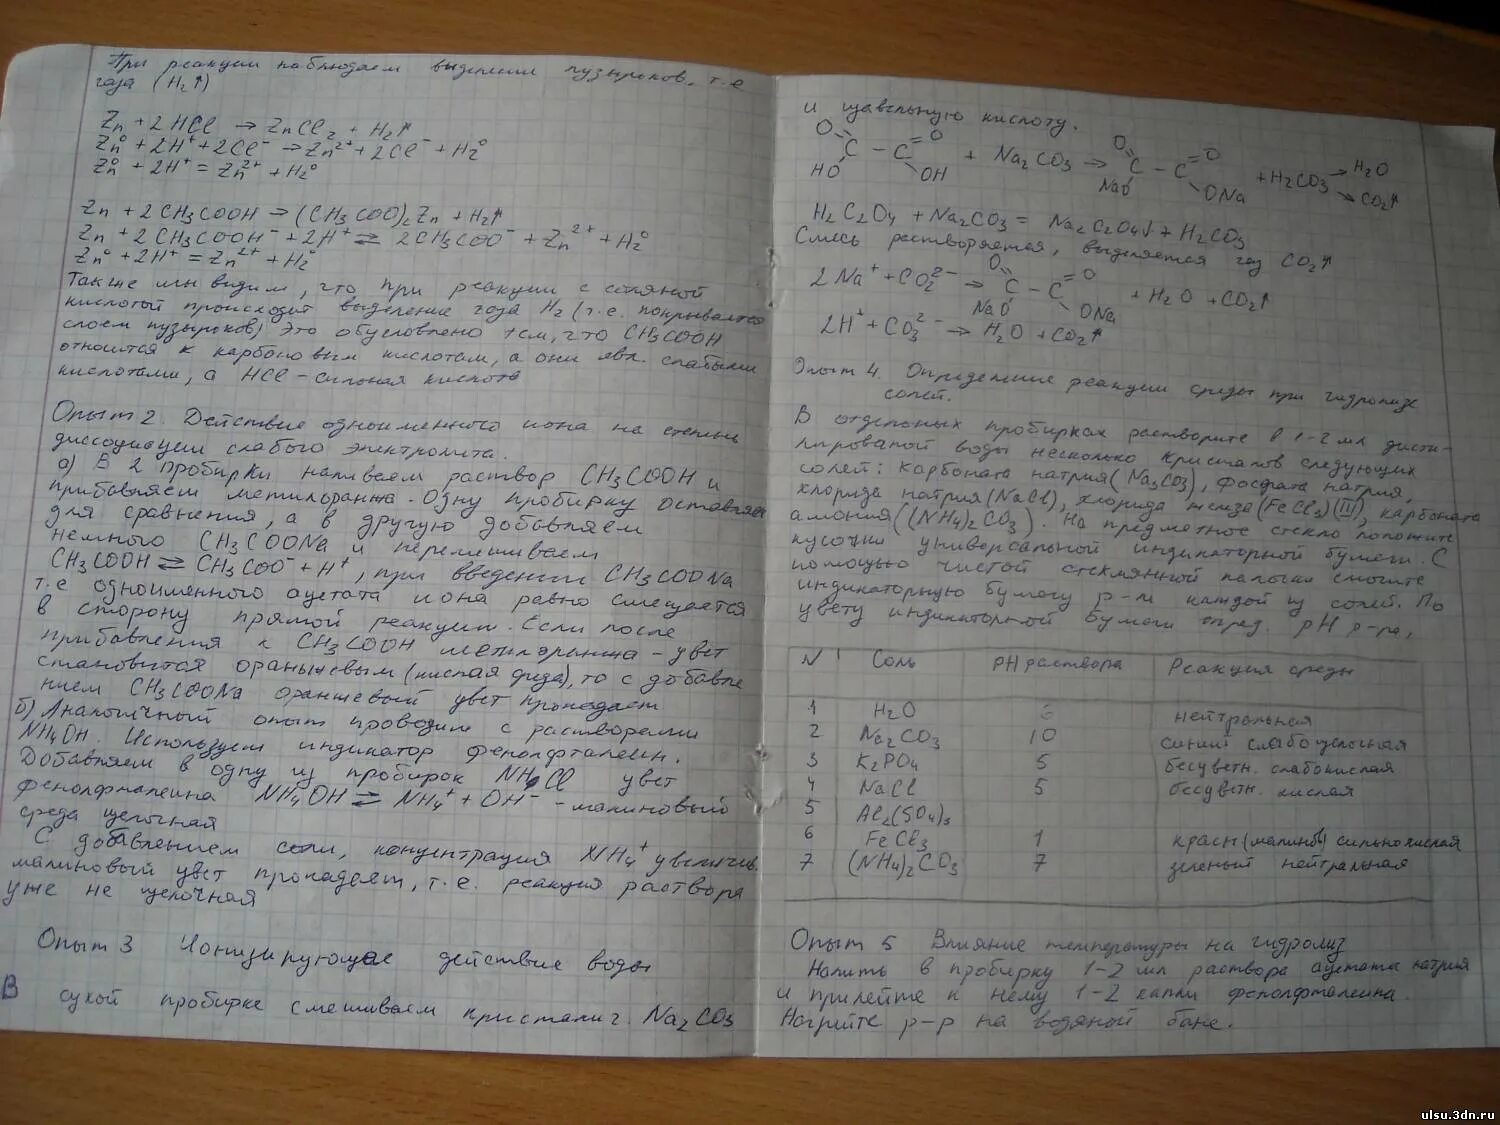 При реакции наблюдаем выделение пузырьков, т.е
газа (H₂↑)
Zn + 2HCl → ZnCl₂ + H₂↑
Zn⁰ + 2H⁺ + 2Cl⁻ → Zn²⁺ + 2Cl⁻ + H₂⁰
Zn⁰ + 2H⁺ = Zn²⁺ + H₂⁰
Zn + 2CH₃COOH → (CH₃COO)₂Zn + H₂↑
Zn + 2CH₃COOH⁻ + 2H⁺ ⇄ 2CH₃COO⁻ + Zn²⁺ + H₂⁰
Zn⁰ + 2H⁺ = Zn²⁺ + H₂⁰
Также мы видим, что при реакции с соляной
кислотой происходит выделение газа H₂ (т.е. покрывается
слоем пузырьков) Это обусловлено тем, что CH₃COOH
относится к карбоновым кислотам, а они явл. слабыми
кислотами, а HCl – сильная кислота
Опыт 2. Действие одноименного иона на степень
диссоциации слабого электролита.
а) В 2 пробирки наливаем раствор CH₃COOH и
прибавляем метилоранжа. Одну пробирку оставляем
для сравнения, а в другую добавляем
немного CH₃COONa и перемешиваем
CH₃COOH ⇄ CH₃COO⁻ + H⁺, при введении CH₃COONa
т.е одноименного ацетата иона равно смещается
в сторону прямой реакции. Если после
прибавления к CH₃COOH метилоранжа – цвет
становится оранжевым (кислая среда), то с добавле
нием CH₃COONa оранжевый цвет пропадает
б) Аналогичный опыт проводим с растворами
NH₄OH. Используем индикатор фенолфталеин.
Добавляем в одну из пробирок NH₄Cl цвет
фенолфталеина NH₄OH ⇄ NH₄⁺ + OH⁻ – малиновый
среда щелочная
С добавлением соли, концентрация NH₄⁺ увеличив.
малиновый цвет пропадает, т.е. реакция раствора
уже не щелочная
Опыт 3 Ионизирующее действие воды
В сухой пробирке смешиваем кристаллич. Na₂CO₃
и щавельную кислоту.
O O O O
C – C + Na₂CO₃ → C – C + H₂CO₃ → H₂O
HO OH NaO ONa CO₂↑
H₂C₂O₄ + Na₂CO₃ = Na₂C₂O₄↓ + H₂CO₃
Смесь растворяется, выделяется газ CO₂↑
2Na⁺ + CO₂²⁻ → C – C + H₂O + CO₂↑
O O NaO ONa
2H⁺ + CO₃²⁻ → H₂O + CO₂↑
Опыт 4. Определение реакции среды при гидролизе
солей.
В отдельных пробирках растворите в 1-2 мл дисти-
лированой воды несколько кристалов следующих
солей: карбоната натрия (Na₂CO₃), фосфата натрия,
хлорида натрия (NaCl), хлорида железа (FeCl₃) (III), карбоната
амония ((NH₄)₂CO₃). На предметное стекло положите
кусочки универсальной индикаторной бумаги. С
помощью чистой стеклянной палочки смочите
индикаторную бумагу р-м каждой из солей. По
цвету индикаторной бумаги опред. pH р-ра,
N Соль PH раствора Реакция среды
1 H₂O 6 нейтральная
2 Na₂CO₃ 10 синий слабощелочная
3 K₂PO₄ 5 бесцветн. слабокислая
4 NaCl 5 бесцветн. кислая
5 Al₂(SO₄)₃
6 FeCl₃ 1 красн (малинов) сильнокислая
7 (NH₄)₂CO₃ 7 зеленый нейтральная
Опыт 5 Влияние температуры на гидролиз
Налить в пробирку 1-2 мл раствора ацетата натрия
и прилейте к нему 1-2 капли фенолфталеина.
Нагрейте р-р на водяной бане.
ulsu.3dn.ru